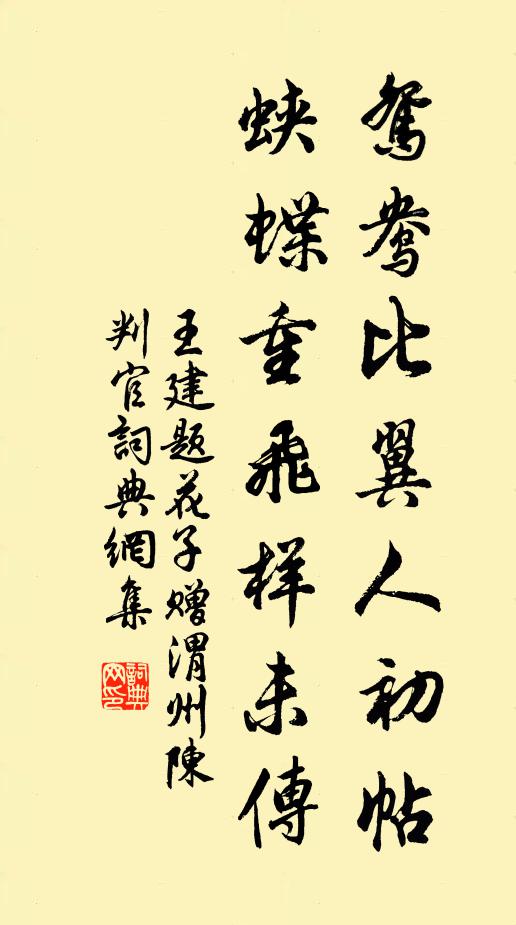 鴛鴦比翼人初帖
蛺蝶重飛样未傳
王建题花子赠渭州陳
判官詞典網集
詞典网印